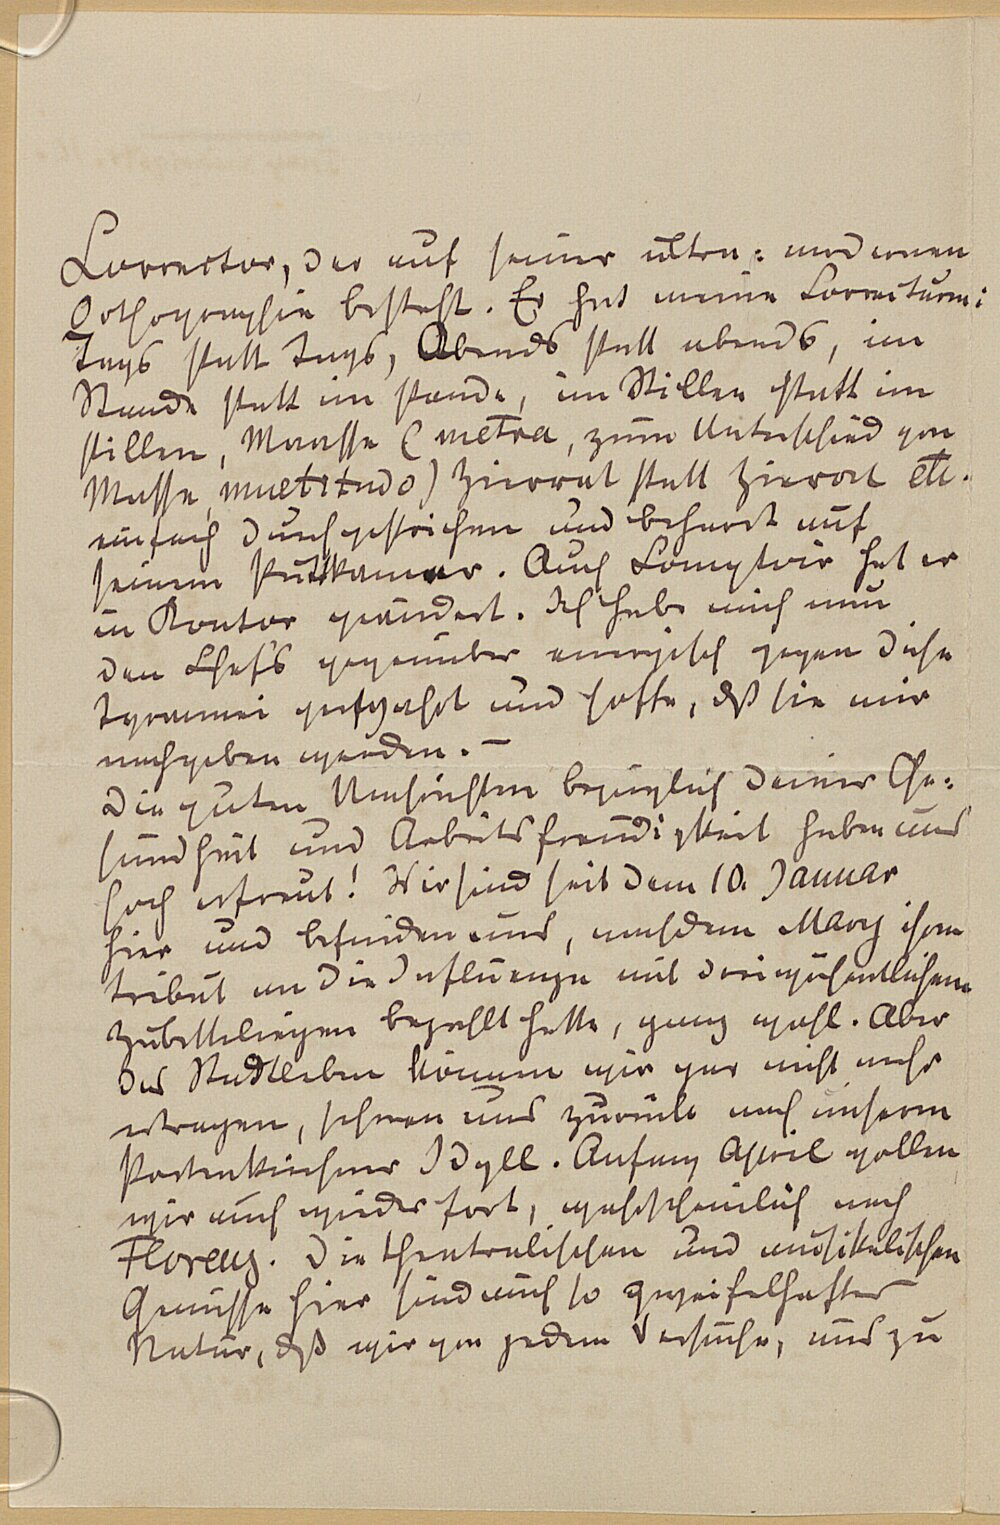 Corrector, der auf seiner ultra-modernen
Orthographie besteht. Er hat meine Correcturen:
Tags statt tags, Abends statt abends, im
Stande statt im stande, im Stillen statt im
stillen, Maasse (metra, zum Unterschied von
Masse, multitudo) Zierrat statt Zierat etc.
einfach durchgestrichen und beharrt auf
seinem Puttkamer. Auch Comptoir hat er
in Kontor geändert. Ich habe mich nun
den Chefs gegenüber energisch gegen diese
Tyrannei gewehrt und hoffe, dß sie mir
nachgeben werden. —
Die guten Nachrichten bezüglich Deiner Ge-
sundheit und Arbeitsfreudigkeit haben uns
hoch erfreut! Wir sind seit dem 10. Januar
hier und befinden uns, nachdem Mary ihren
Tribut an die Influenza mit dreiwöchentlichem
Zubetteliegen bezahlt hatte, ganz wohl. Aber
das Stadtleben können wir gar nicht mehr
ertragen, sehnen uns zurück nach unserm
Partenkirchner Idyll. Anfang April wollen
wir auch wieder fort, wahrscheinlich nach
Florenz. Die theatralischen und musikalischen
Genüsse hier sind auch so zweifelhafter
Natur, dß wir von jedem Versuche, uns zu